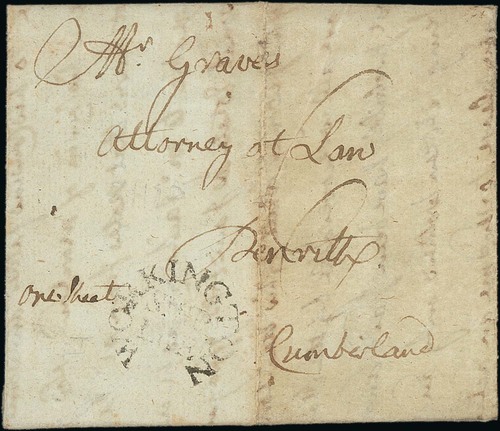 Mr. Graves
Attorney at Law
Penrith
one Sheet
WORKINGTON
Cumberland